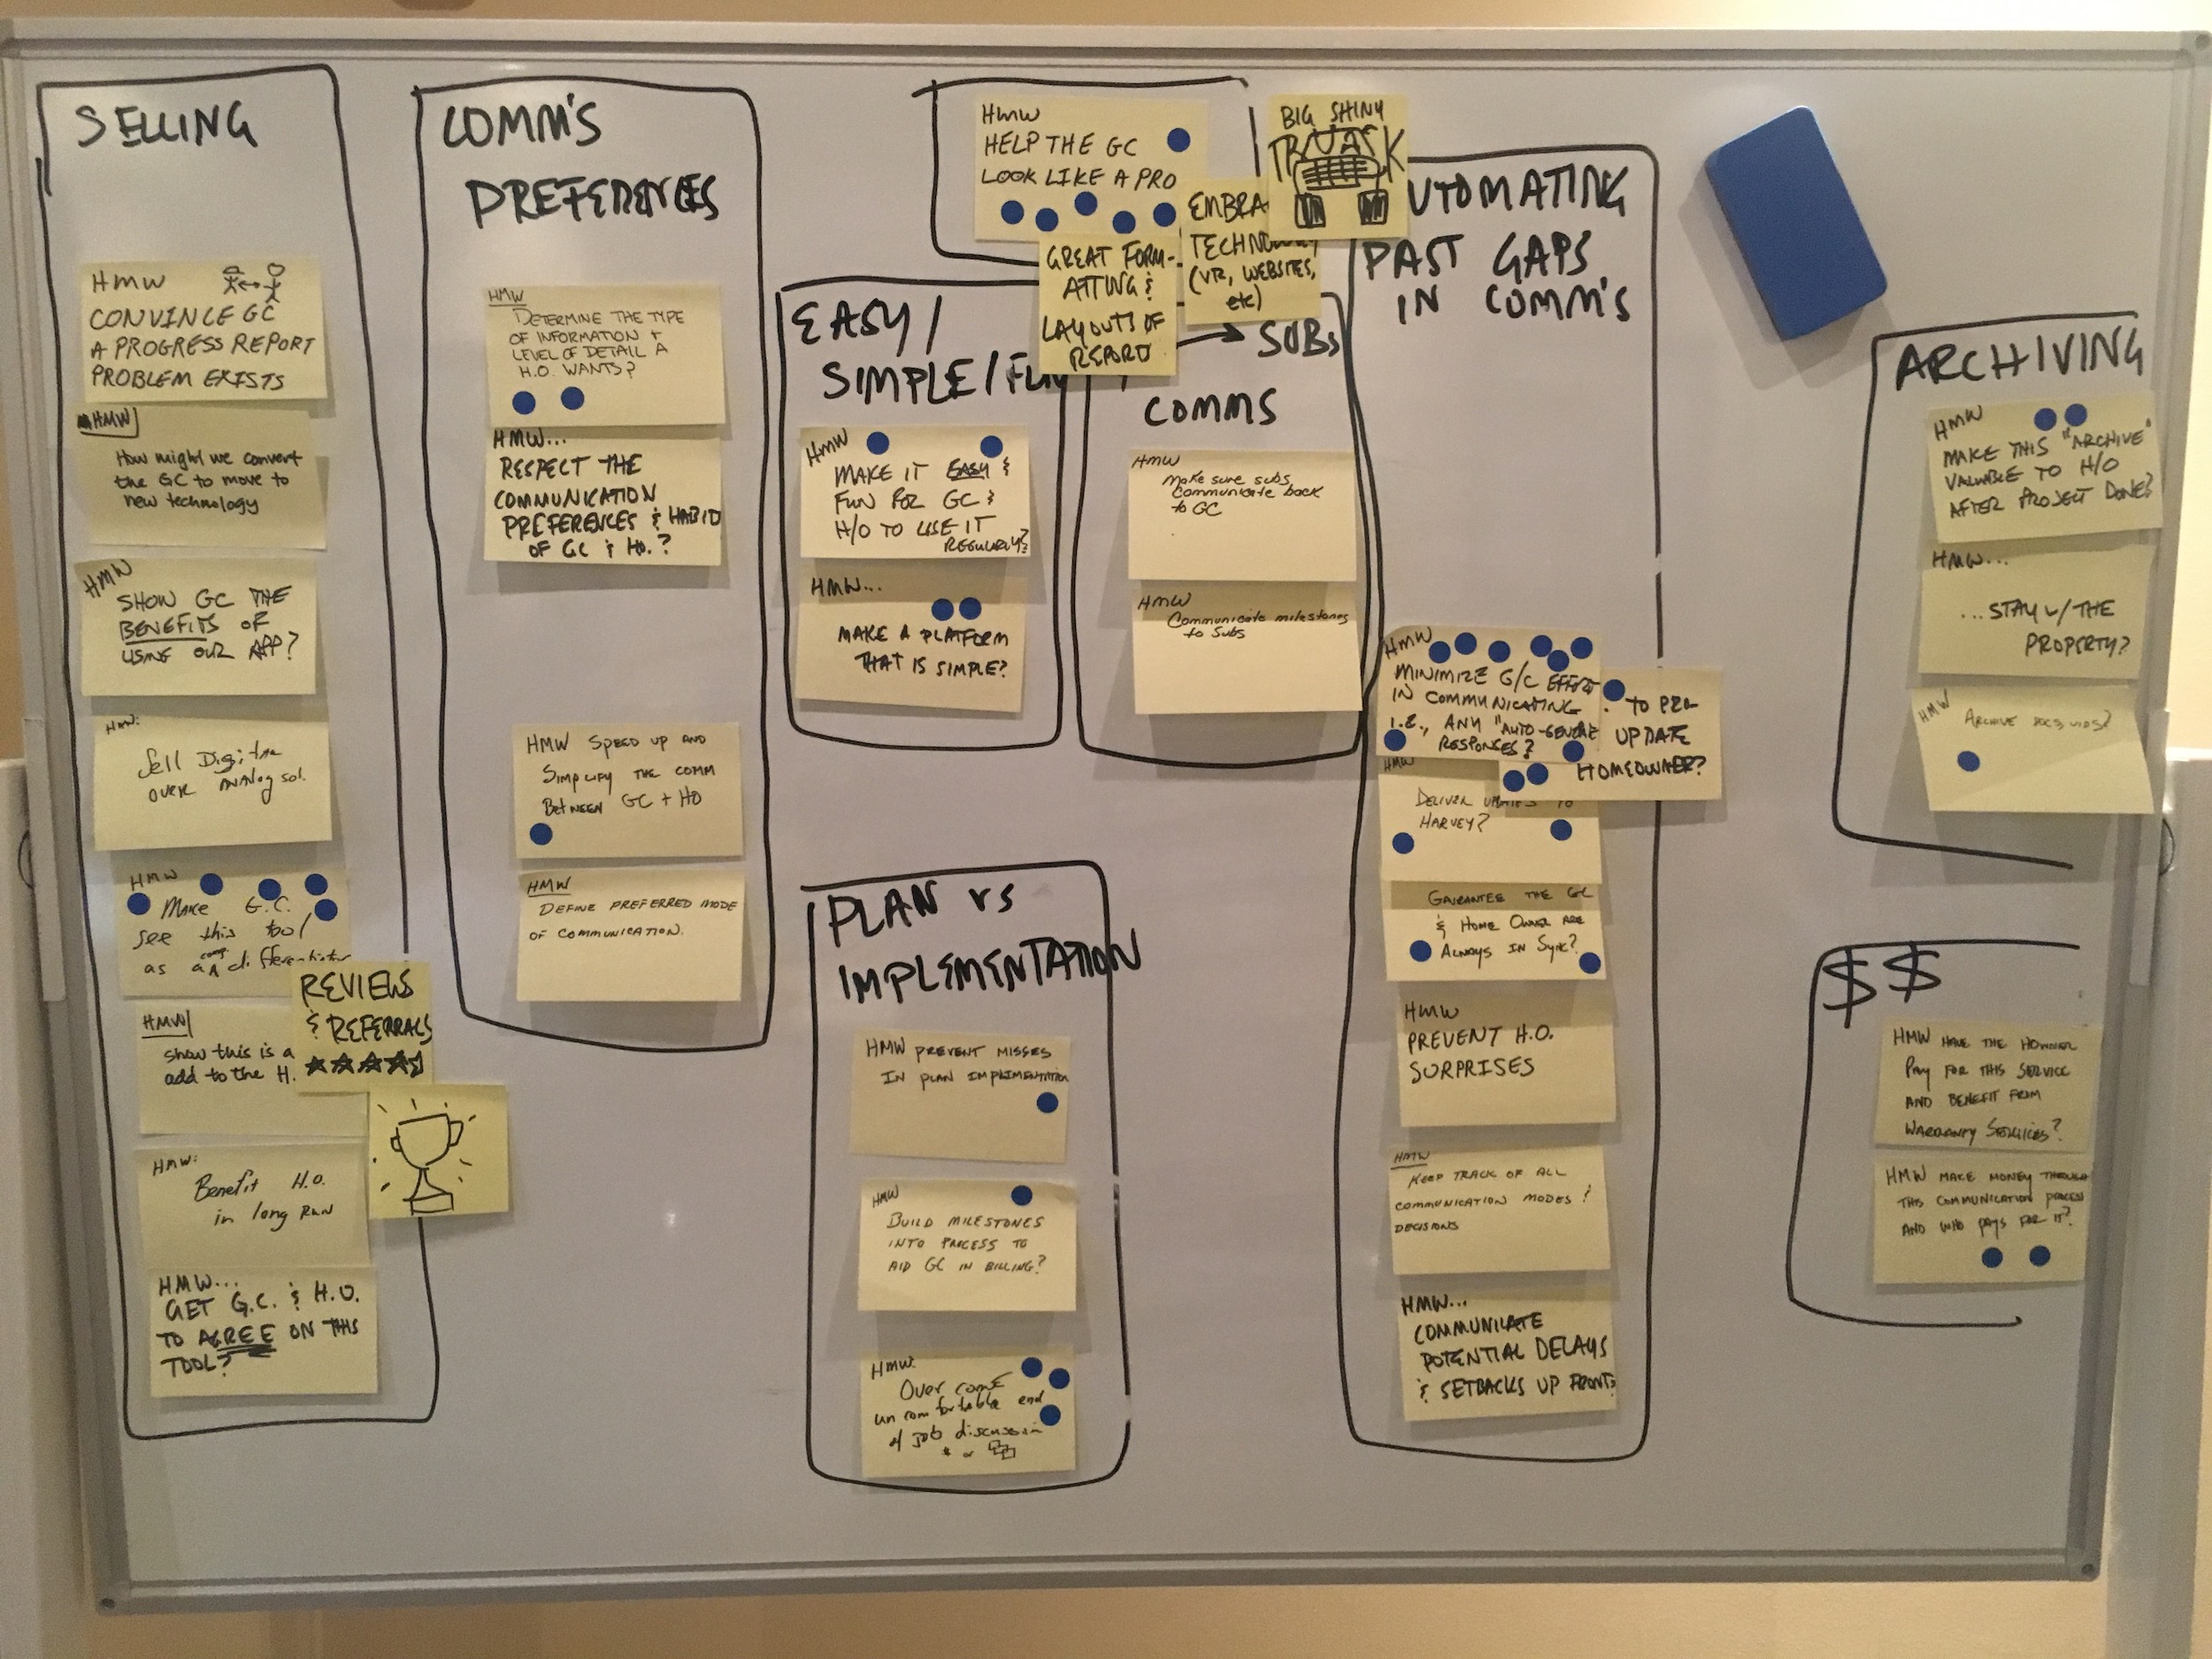 SELLING
HMW
CONVINCE GC
A PROGRESS REPORT
PROBLEM EXISTS
HMW
How might we convert
the GC to move to
new technology
HMW
SHOW GC THE
BENEFITS OF
USING OUR APP?
HMW:
Sell Digital
over Analog sol.
HMW
Make G.C.
see this tool
as a comp differentiator
REVIEWS
& REFERRALS
HMW
show this is a
add to the H.
HMW:
Benefit H.O.
in long RUN
HMW...
GET G.C. & H.O.
TO AGREE ON THIS
TOOL?
COMM'S
PREFERENCES
HMW
DETERMINE THE TYPE
OF INFORMATION +
LEVEL OF DETAIL A
H.O. WANTS?
HMW...
RESPECT THE
COMMUNICATION
PREFERENCES & HABITS
OF GC & HO.?
HMW SPEED UP AND
SIMPLIFY THE COMM
BETWEEN GC + HO
HMW
DEFINE PREFERRED MODE
OF COMMUNICATION.
HMW
HELP THE GC
LOOK LIKE A PRO
GREAT FORM-
ATTING &
LAYOUTS OF
REPORT
EMBRA
TECHNO
(VR, WEBSITES,
etc)
BIG SHINY
TRUCK
EASY/
SIMPLE/FUN
HMW
MAKE IT EASY &
FUN FOR GC &
H/O TO USE IT
REGULARLY?
HMW...
MAKE A PLATFORM
THAT IS SIMPLE?
SUBS
COMMS
HMW
Make sure subs
communicate back
to GC
HMW
Communicate milestones
to Subs
PLAN vs
IMPLEMENTATION
HMW PREVENT MISSES
IN PLAN IMPLIMENTATION
HMW
BUILD MILESTONES
INTO PROCESS TO
AID GC IN BILLING?
HMW:
Over come
uncomfortable end
of job discussion
$ or
AUTOMATING
PAST GAPS
IN COMM'S
HMW
MINIMIZE G/C EFFORT
IN COMMUNICATING
I.E., ANY "AUTO-GENERATE
RESPONSES?
TO PRE-
UPDATE
HOMEOWNER?
HMW
DELIVER UPDATES TO
HARVEY?
GUARANTEE THE GC
& HOME OWNER ARE
ALWAYS IN SYNC?
HMW
PREVENT H.O.
SURPRISES
HMW
KEEP TRACK OF ALL
COMMUNICATION MODES &
DECISIONS
HMW...
COMMUNICATE
POTENTIAL DELAYS
& SETBACKS UP FRONT?
ARCHIVING
HMW
MAKE THIS "ARCHIVE"
VALUABLE TO H/O
AFTER PROJECT DONE?
HMW...
...STAY W/ THE
PROPERTY?
HMW
ARCHIVE DOCS, VIDS?
$$
HMW HAVE THE HOWNER
PAY FOR THIS SERVICE
AND BENEFIT FROM
WARRANTY SERVICES?
HMW MAKE MONEY THROUGH
THIS COMMUNICATION PROCESS
AND WHO PAYS FOR IT?